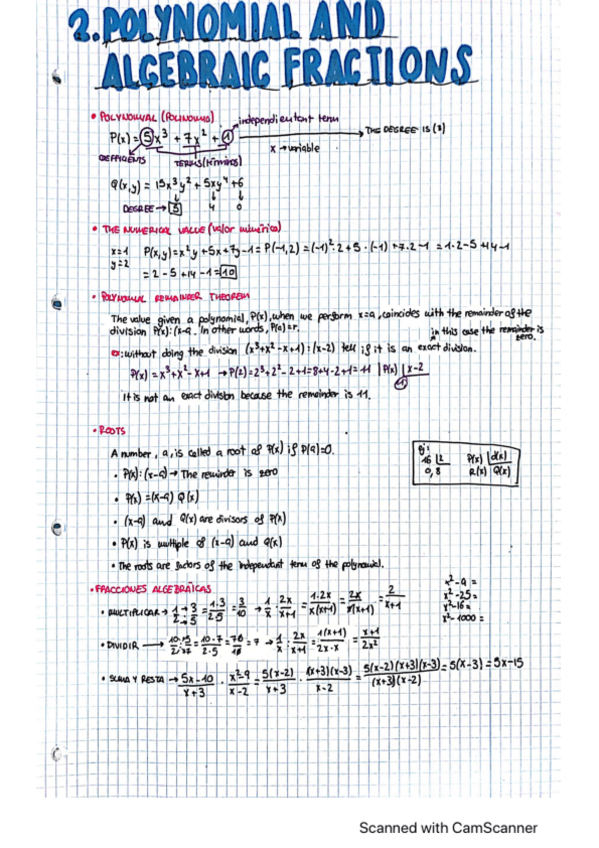 2. POLYNOMIAL AND
ALGEBRAIC FRACTIONS
• POLYNOMIAL (POLINOMIO)
independientant term
P(x) = 5x³ + 7x² + 1 → THE DEGREE IS (3)
COEFFICIENTS TERMS (términos) x → variable
Q(x,y) = 15x³y² + 5xy⁴ + 6
DEGREE → 5 4 0
• THE NUMERICAL VALUE (valor numérico)
x=1 P(x,y) = x²y + 5x + 7y - 1 = P(-1,2) = (-1)²·2 + 5·(-1) + 7·2 - 1 = 1·2 - 5 + 14 - 1
y=2
= 2 - 5 + 14 - 1 = 10
• POLYNOMIAL REMAINDER THEOREM
The value given a polynomial, P(x), when we perform x=a, coincides with the remainder of the
division P(x):(x-a. In other words, P(a)=r.
in this case the remainder is
zero.
: without doing the division (x³+x²-x+1):(x-2) tell if it is an exact division.
P(x) = x³+x²-x+1 → P(2) = 2³+2²-2+1 = 8+4-2+1 = 11 | P(x) | x-2
11
It is not an exact division because the remainder is 11.
• ROOTS
A number, a, is called a root of P(x) if P(a)=0.
Ej:
16 |2 P(x) |d(x)
0,8 R(x) Q(x)
• P(x):(x-a) → The reminder is zero
• P(x) = (x-a) Q(x)
• (x-a) and Q(x) are divisors of P(x)
• P(x) is multiple of (x-a) and Q(x)
• The roots are factors of the independant term of the polynomial.
• FRACCIONES ALGEBRAICAS
x²-9=
x²-25=
x²-16=
x²-1000=
• MULTIPLICAR → 1/2 → 3/5 = 1·3/2·5 = 3/10 → 1/x · 2x/x+1 = 1·2x/x(x+1) = 2x/x(x+1) = 2/x+1
• DIVIDIR → = 10·7/2·5 = 70/10 = 7 → 1/x : 2x/x+1 = 1(x+1)/2x·x = x+1/2x²
• SUMA Y RESTA → 5x-10/x+3 · x²-9/x-2 = 5(x-2)/x+3 · (x+3)(x-3)/x-2 = 5(x-2)(x+3)(x-3)/(x+3)(x-2) = 5(x-3) = 5x-15
Scanned with CamScanner